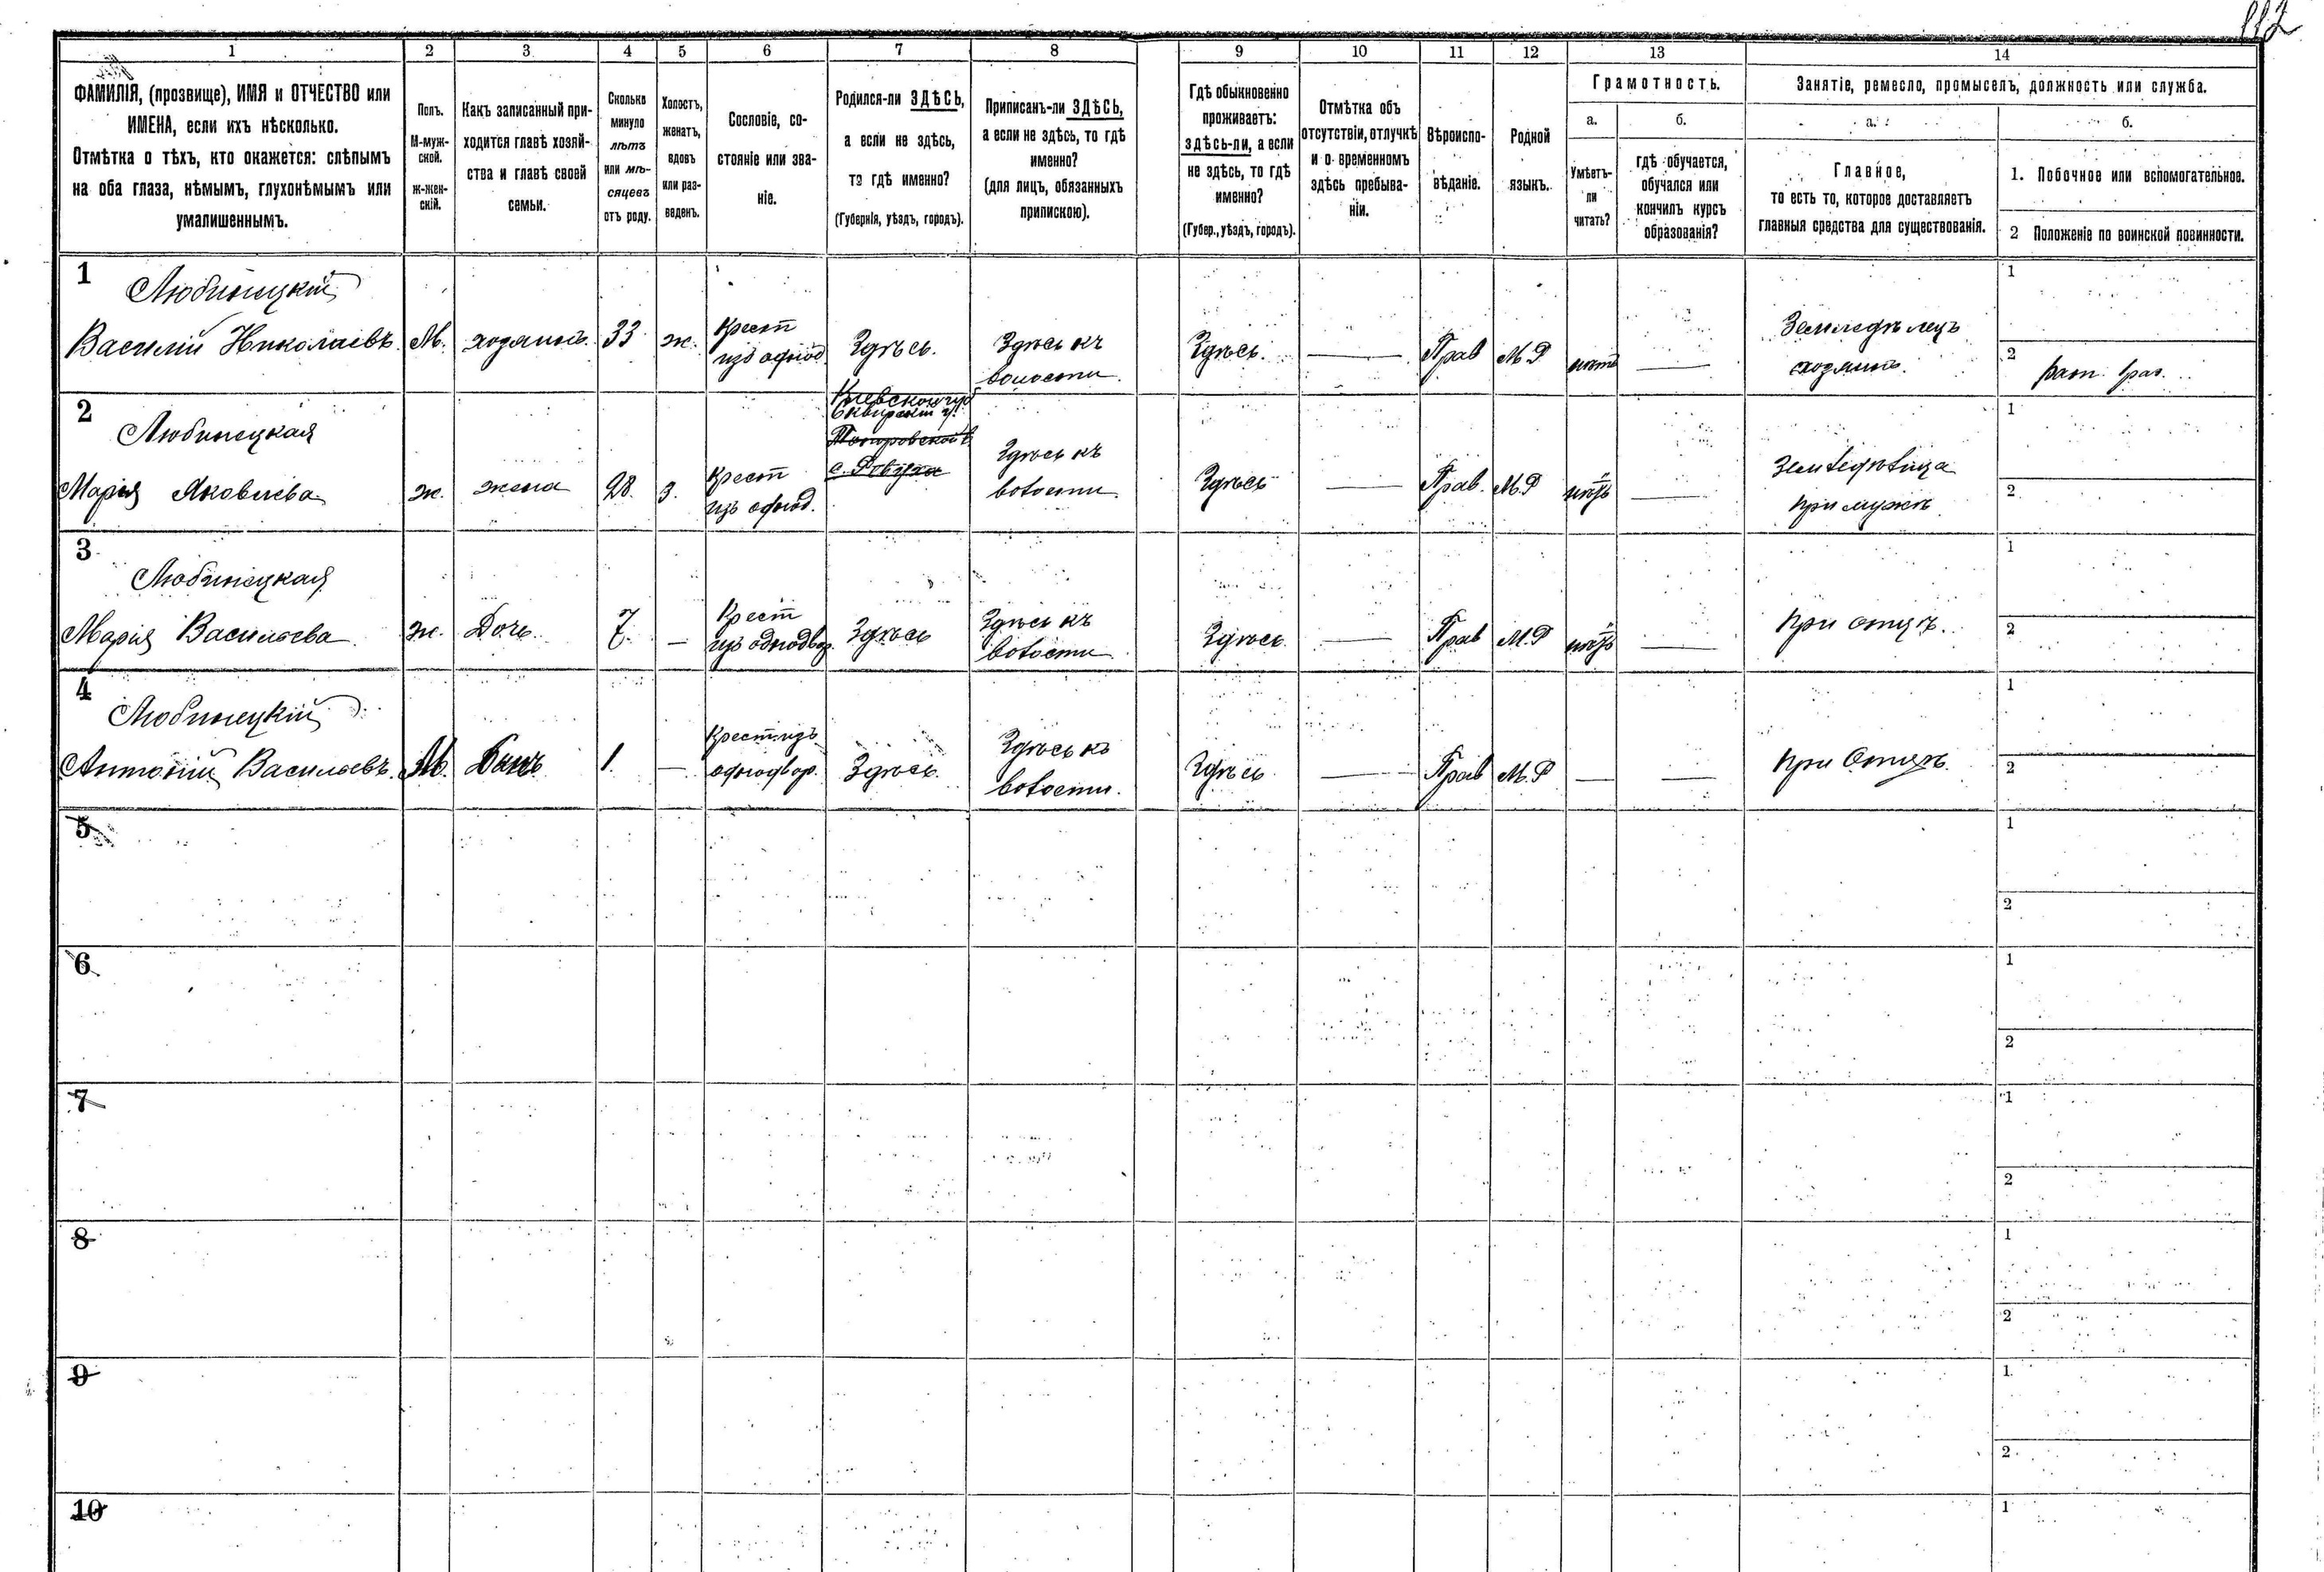 112
1 2 3 4 5 6 7 8 9 10 11 12 13 14
ФАМИЛІЯ, (прозвище), ИМЯ и ОТЧЕСТВО или
ИМЕНА, если ихъ нѣсколько.
Отмѣтка о тѣхъ, кто окажется: слѣпымъ
на оба глаза, нѣмымъ, глухонѣмымъ или
умалишеннымъ.
Полъ.
М-муж-
ской.
ж-жен-
скій.
Какъ записанный при-
ходится главѣ хозяй-
ства и главѣ своей
семьи.
Сколько
минуло
лѣтъ
или мѣ-
сяцевъ
отъ роду.
Холостъ,
женатъ,
вдовъ
или раз-
веденъ.
Сословіе, со-
стояніе или зва-
ніе.
Родился-ли ЗДѢСЬ,
а если не здѣсь,
то гдѣ именно?
(Губернія, уѣздъ, городъ).
Приписанъ-ли ЗДѢСЬ,
а если не здѣсь, то гдѣ
именно?
(для лицъ, обязанныхъ
припискою).
Гдѣ обыкновенно
проживаетъ:
здѣсь-ли, а если
не здѣсь, то гдѣ
именно?
(Губер., уѣздъ, городъ).
Отмѣтка объ
отсутствіи, отлучкѣ
и о временномъ
здѣсь пребыва-
ніи.
Вѣроиспо-
вѣданіе.
Родной
языкъ.
Грамотность.
а.
Умѣетъ-
ли
читать?
б.
гдѣ обучается,
обучался или
кончилъ курсъ
образованія?
Занятіе, ремесло, промыселъ, должность или служба.
а.
Главное,
то есть то, которое доставляетъ
главныя средства для существованія.
б.
1. Побочное или вспомогательное.
2 Положеніе по воинской повинности.
1
Любинецкій
Василій Николаевъ
М.
хозяинъ
33
ж.
Крест
изъ однод
Здѣсь.
Здѣсь къ
волости.
Здѣсь.
—
Прав
М.Р
нѣтъ
—
Земледѣлецъ
хозяинъ.
1
2
рат.
2
Любинецкая
Марія Яковлева
ж.
жена
28.
з.
Крест
изъ однод.
Кіевской губ
Сквирскаго у.
с.
Здѣсь къ
волости
Здѣсь
—
Прав.
М.Р
нѣтъ
—
Земледѣлица
при мужѣ
1
2
3
Любинецкая
Марія Васильева
ж.
Дочь.
7.
—
Крест
изъ однодвор.
Здѣсь
Здѣсь къ
волости
Здѣсь
—
Прав
М.Р
нѣтъ
—
при отцѣ.
1
2
4
Любинецкій
Антоній Васильевъ.
М.
Сынъ
1.
—
Крест изъ
однодвор.
Здѣсь.
Здѣсь къ
волости.
Здѣсь
—
Прав
М.Р
—
—
при Отцѣ.
1
2
5
1
2
6
1
2
7
1
2
8
1
2
9
1.
2
10
1